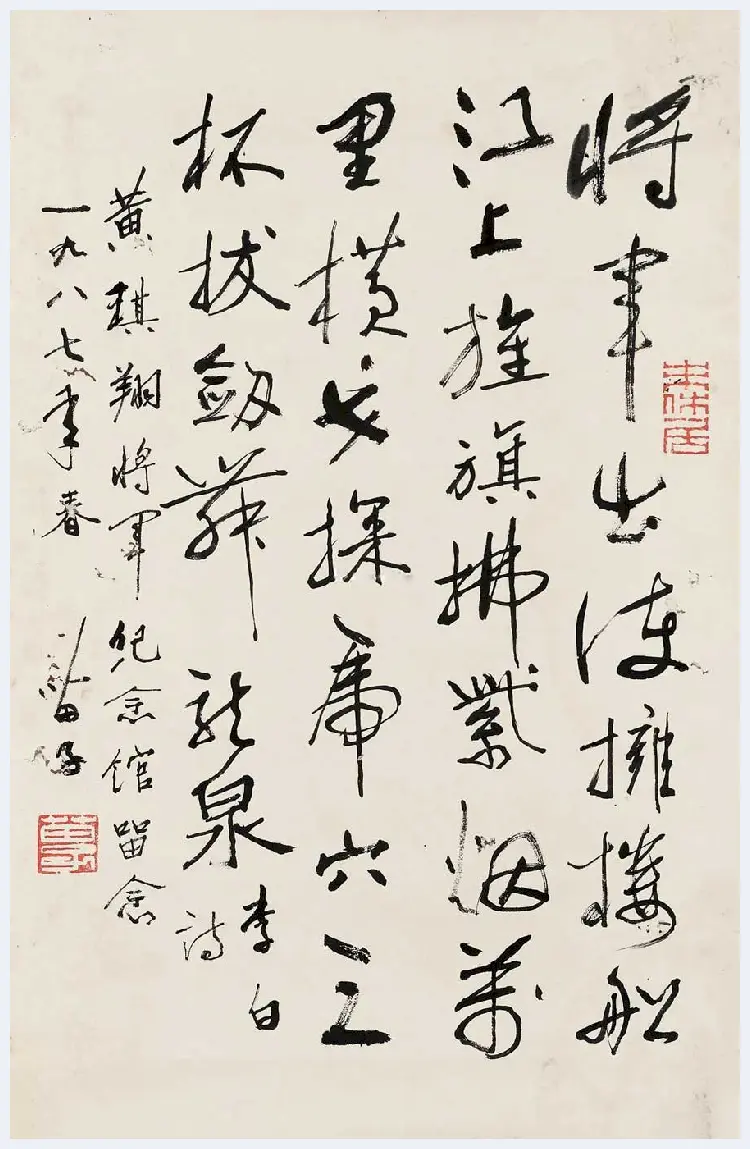 将军出使擁楼船
江上旌旗拂紫烟萬
里横戈探虎穴三
杯拔劔舞龙泉
李白
诗
黄琪翔将军纪念馆留念
一九八七年春 苗子
苗子